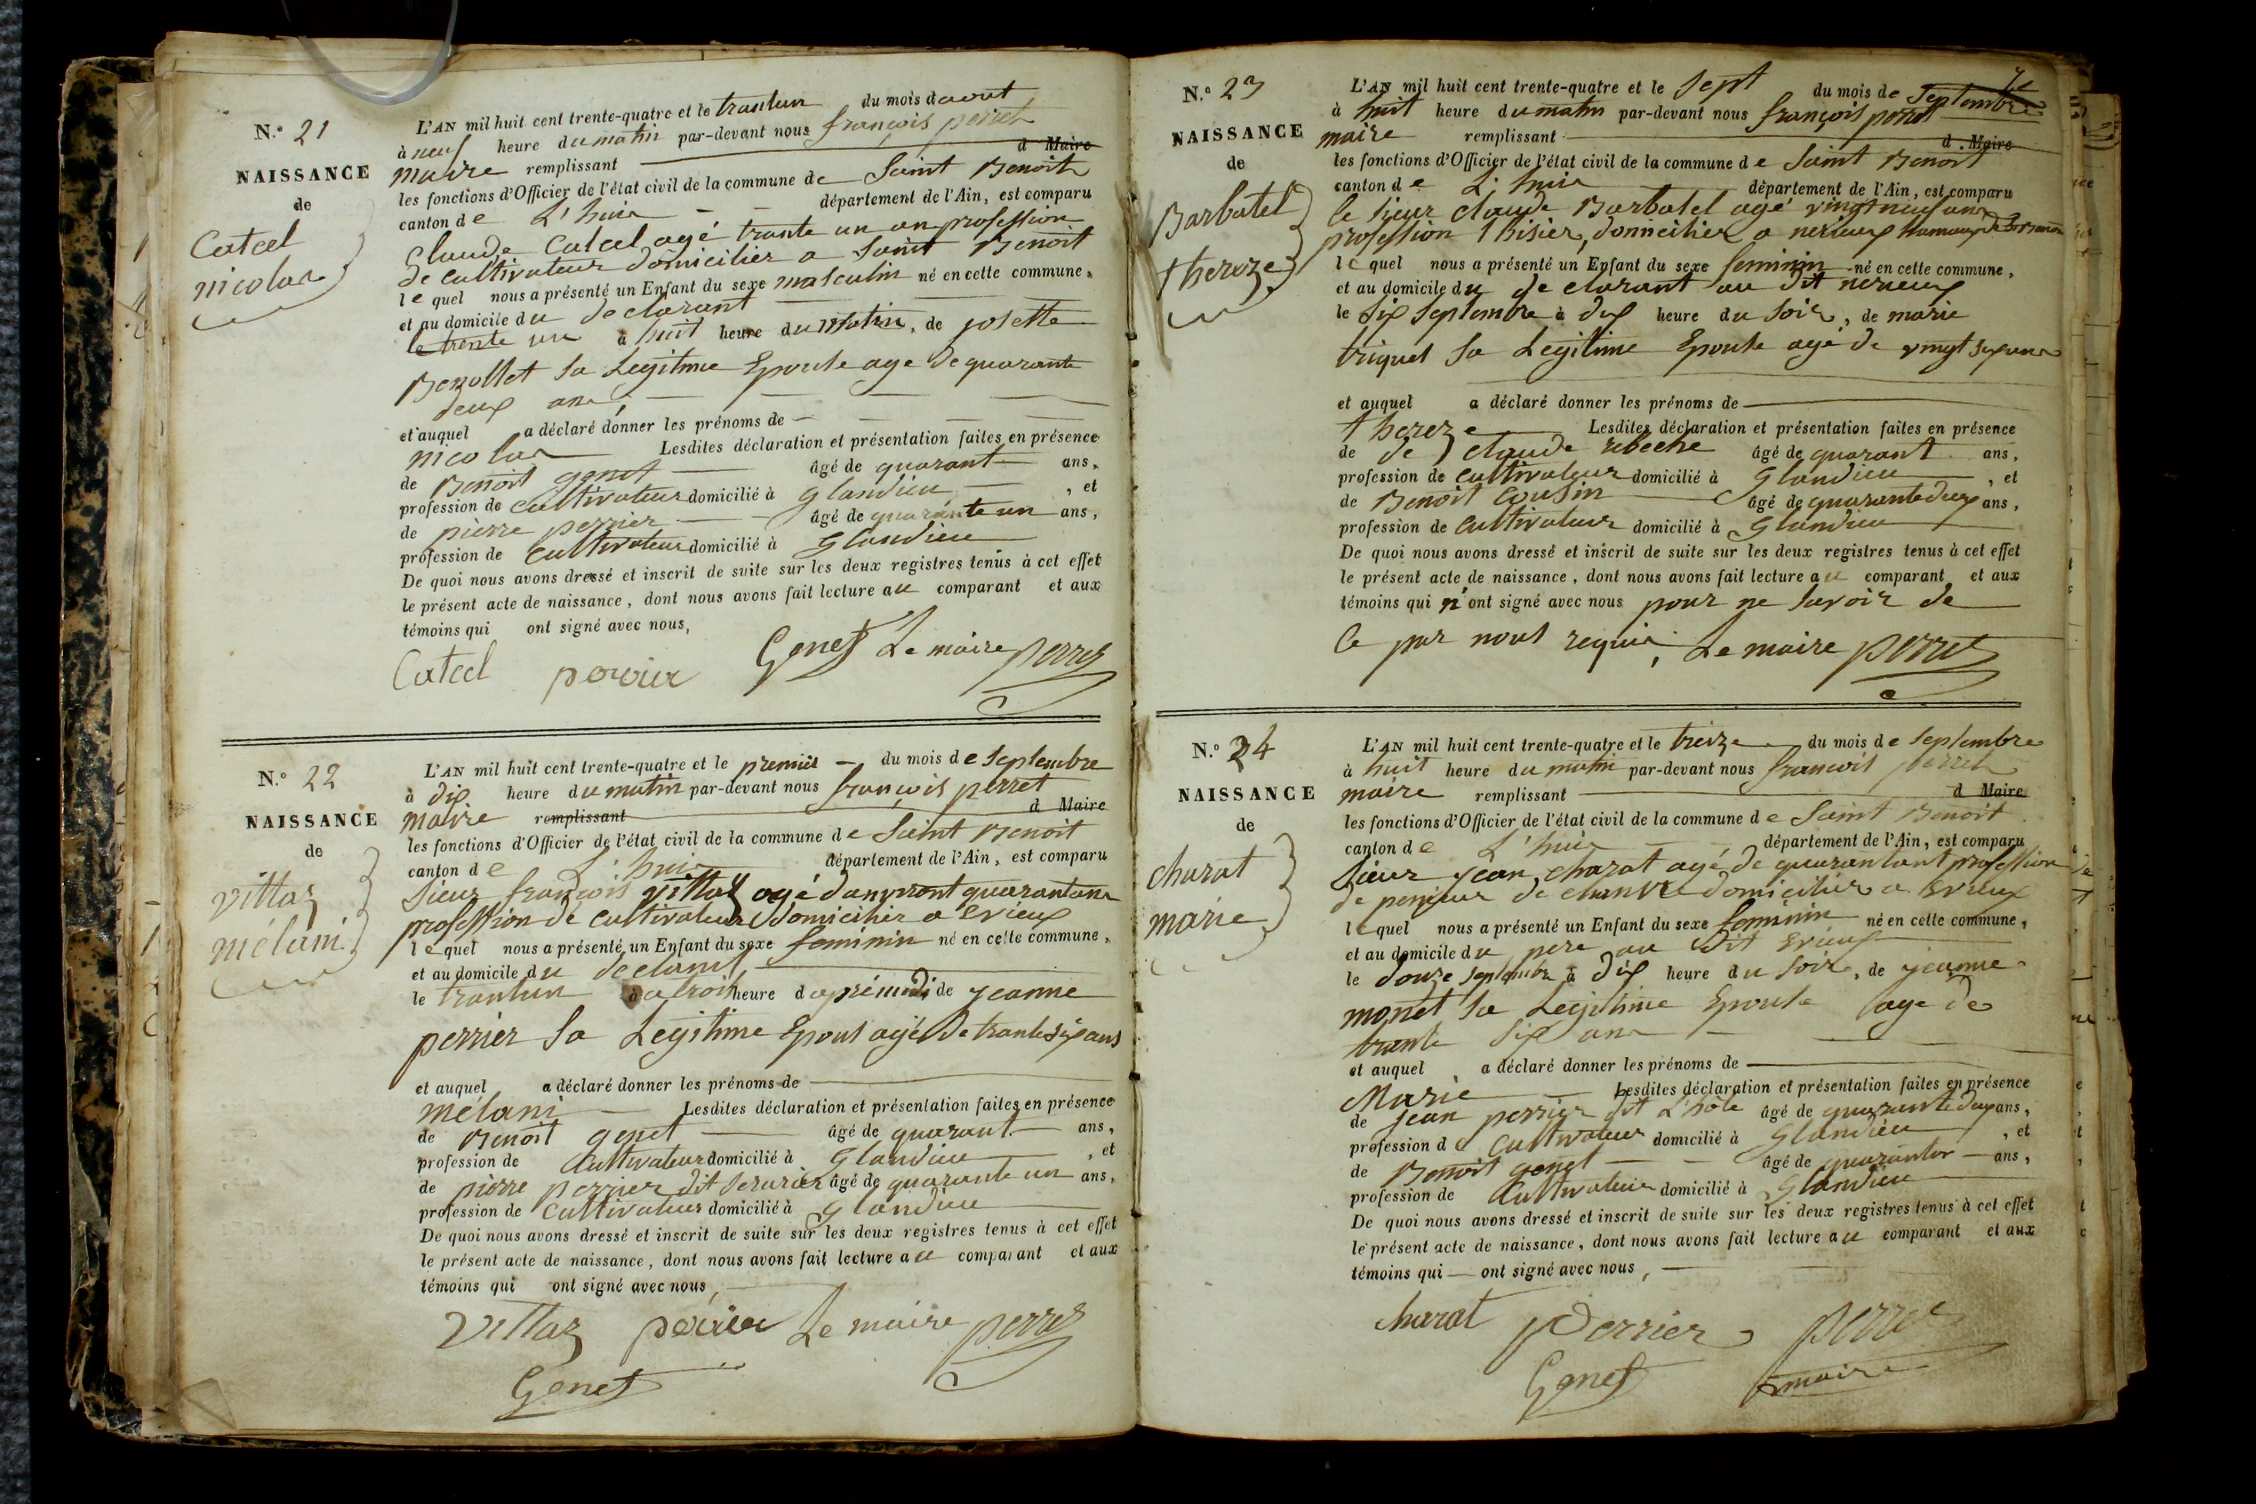 N.° 21
NAISSANCE
de
Catcel
nicolas
L'AN mil huit cent trente-quatre et le trantun du mois daout
à neuf heure du matin par-devant nous françois perret
maire remplissant d Maire
les fonctions d'Officier de l'état civil de la commune de Saint Benoit
canton de L'huis département de l'Ain, est comparu
Claude Catcel agé trante un an profession
de cultivateur domicilier a Saint Benoit
lequel nous a présenté un Enfant du sexe masculin né en cette commune,
et au domicile du declarant
le trente un à huit heure du matin, de josette
Benollet sa Legitime Epouse age de quarante
deux ans,
et auquel a déclaré donner les prénoms de
nicolas Lesdites déclaration et présentation faites en présence
de Benoit genet âgé de quarant ans,
profession de cultivateur domicilié à glandieu, et
de pierre perrier âgé de quarante un ans,
profession de cultivateur domicilié à glandieu
De quoi nous avons dressé et inscrit de suite sur les deux registres tenus à cet effet
le présent acte de naissance, dont nous avons fait lecture au comparant et aux
témoins qui ont signé avec nous,
Catcel perrier Genet Le maire perret
N.° 22
NAISSANCE
de
villaz
mélani
L'AN mil huit cent trente-quatre et le premier du mois de septembre
à dix heure du matin par-devant nous françois perret
maire remplissant d Maire
les fonctions d'Officier de l'état civil de la commune de Saint Benoit
canton de L'huis département de l'Ain, est comparu
Sieur françois villaz agé danviront quarantans
profession de cultivateur domicilier a Evieux
lequel nous a présenté un Enfant du sexe feminin né en cette commune,
et au domicile du declarant
le trantun a trois heure daprémidi de jeanne
perrier sa Legitime Epous agé de trantesix ans
et auquel a déclaré donner les prénoms de
mélani Lesdites déclaration et présentation faites en présence
de Benoit genet âgé de quarant ans,
profession de cultivateur domicilié à glandieu, et
de pierre perrier dit serurier âgé de quarante un ans,
profession de cultivateur domicilié à glandieu
De quoi nous avons dressé et inscrit de suite sur les deux registres tenus à cet effet
le présent acte de naissance, dont nous avons fait lecture au comparant et aux
témoins qui ont signé avec nous,
Villaz perrier Le maire perret
Genet
N.° 23
NAISSANCE
de
Barbatel
thereze
L'AN mil huit cent trente-quatre et le sept du mois de septembre
à huit heure du matin par-devant nous françois perret
maire remplissant d Maire
les fonctions d'Officier de l'état civil de la commune de Saint Benoit
canton de L'huis département de l'Ain, est comparu
le sieur claude Barbatel agé vingt neuf ans
profession thisier, domicilier a nerieux hamaux
lequel nous a présenté un Enfant du sexe feminin né en cette commune,
et au domicile du de clarant au dit nerieux
le six septembre à dix heure du soir, de marie
triquet sa Legitime Epouse agé de vingt six ans
et auquel a déclaré donner les prénoms de
thereze Lesdites déclaration et présentation faites en présence
de de claude rebeche âgé de quarant ans,
profession de cultivateur domicilié à glandieu, et
de Benoit cousin âgé de quarante deux ans,
profession de cultivateur domicilié à glandieu
De quoi nous avons dressé et inscrit de suite sur les deux registres tenus à cet effet
le présent acte de naissance, dont nous avons fait lecture au comparant et aux
témoins qui n'ont signé avec nous pour ne savoir de
ce par nous requis, Le maire perret
N.° 24
NAISSANCE
de
charat
marie
L'AN mil huit cent trente-quatre et le treize du mois de septembre
à huit heure du matin par-devant nous françois perret
maire remplissant d Maire
les fonctions d'Officier de l'état civil de la commune de Saint Benoit
canton de L'huis département de l'Ain, est comparu
Sieur jean charat agé de quarantant profession
de penjeur de chanvre domicilier a Evieux
lequel nous a présenté un Enfant du sexe feminin né en cette commune,
et au domicile du pere au dit Evieux
le douze septembre à dix heure du soir, de jeanne
monet sa Legitime Epouse age de
trante six ans
et auquel a déclaré donner les prénoms de
Marie Lesdites déclaration et présentation faites en présence
de jean perrier dit L'hôte âgé de quarante deux ans,
profession de cultivateur domicilié à glandieu, et
de Benoit genet âgé de ans,
profession de cultivateur domicilié à glandieu
De quoi nous avons dressé et inscrit de suite sur les deux registres tenus à cet effet
le présent acte de naissance, dont nous avons fait lecture au comparant et aux
témoins qui ont signé avec nous,
charat perrier perret
Genet maire